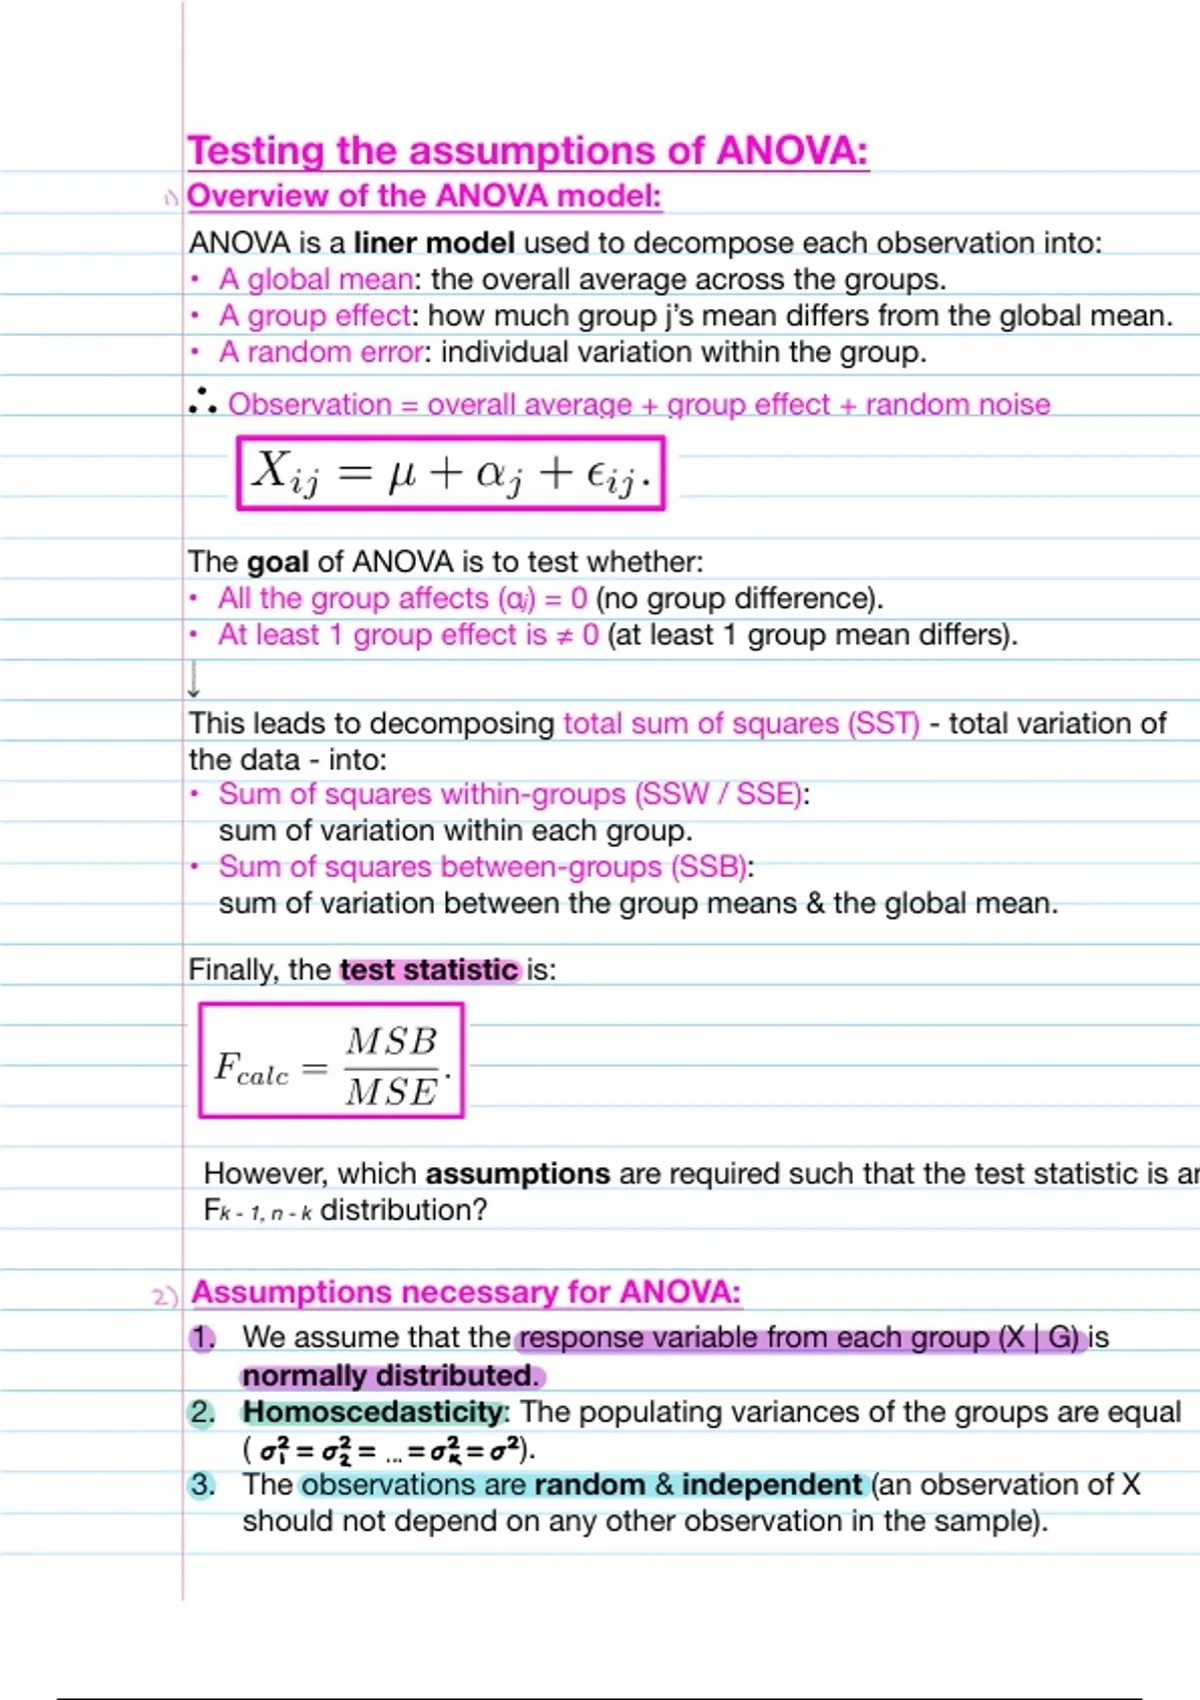 Testing the assumptions of ANOVA:
1) Overview of the ANOVA model:
ANOVA is a liner model used to decompose each observation into:
• A global mean: the overall average across the groups.
• A group effect: how much group j’s mean differs from the global mean.
• A random error: individual variation within the group.
∴ Observation = overall average + group effect + random noise
X_{ij} = μ + α_j + ϵ_{ij}.
The goal of ANOVA is to test whether:
• All the group affects (αj) = 0 (no group difference).
• At least 1 group effect is ≠ 0 (at least 1 group mean differs).
↓
This leads to decomposing total sum of squares (SST) - total variation of
the data - into:
• Sum of squares within-groups (SSW / SSE):
sum of variation within each group.
• Sum of squares between-groups (SSB):
sum of variation between the group means & the global mean.
Finally, the test statistic is:
F_{calc} = MSB / MSE.
However, which assumptions are required such that the test statistic is
Fk - 1, n - k distribution?
2) Assumptions necessary for ANOVA:
1. We assume that the response variable from each group (X | G) is
normally distributed.
2. Homoscedasticity: The populating variances of the groups are equal
( σ₁² = σ₂² = ... = σₖ² = σ²).
3. The observations are random & independent (an observation of X
should not depend on any other observation in the sample).